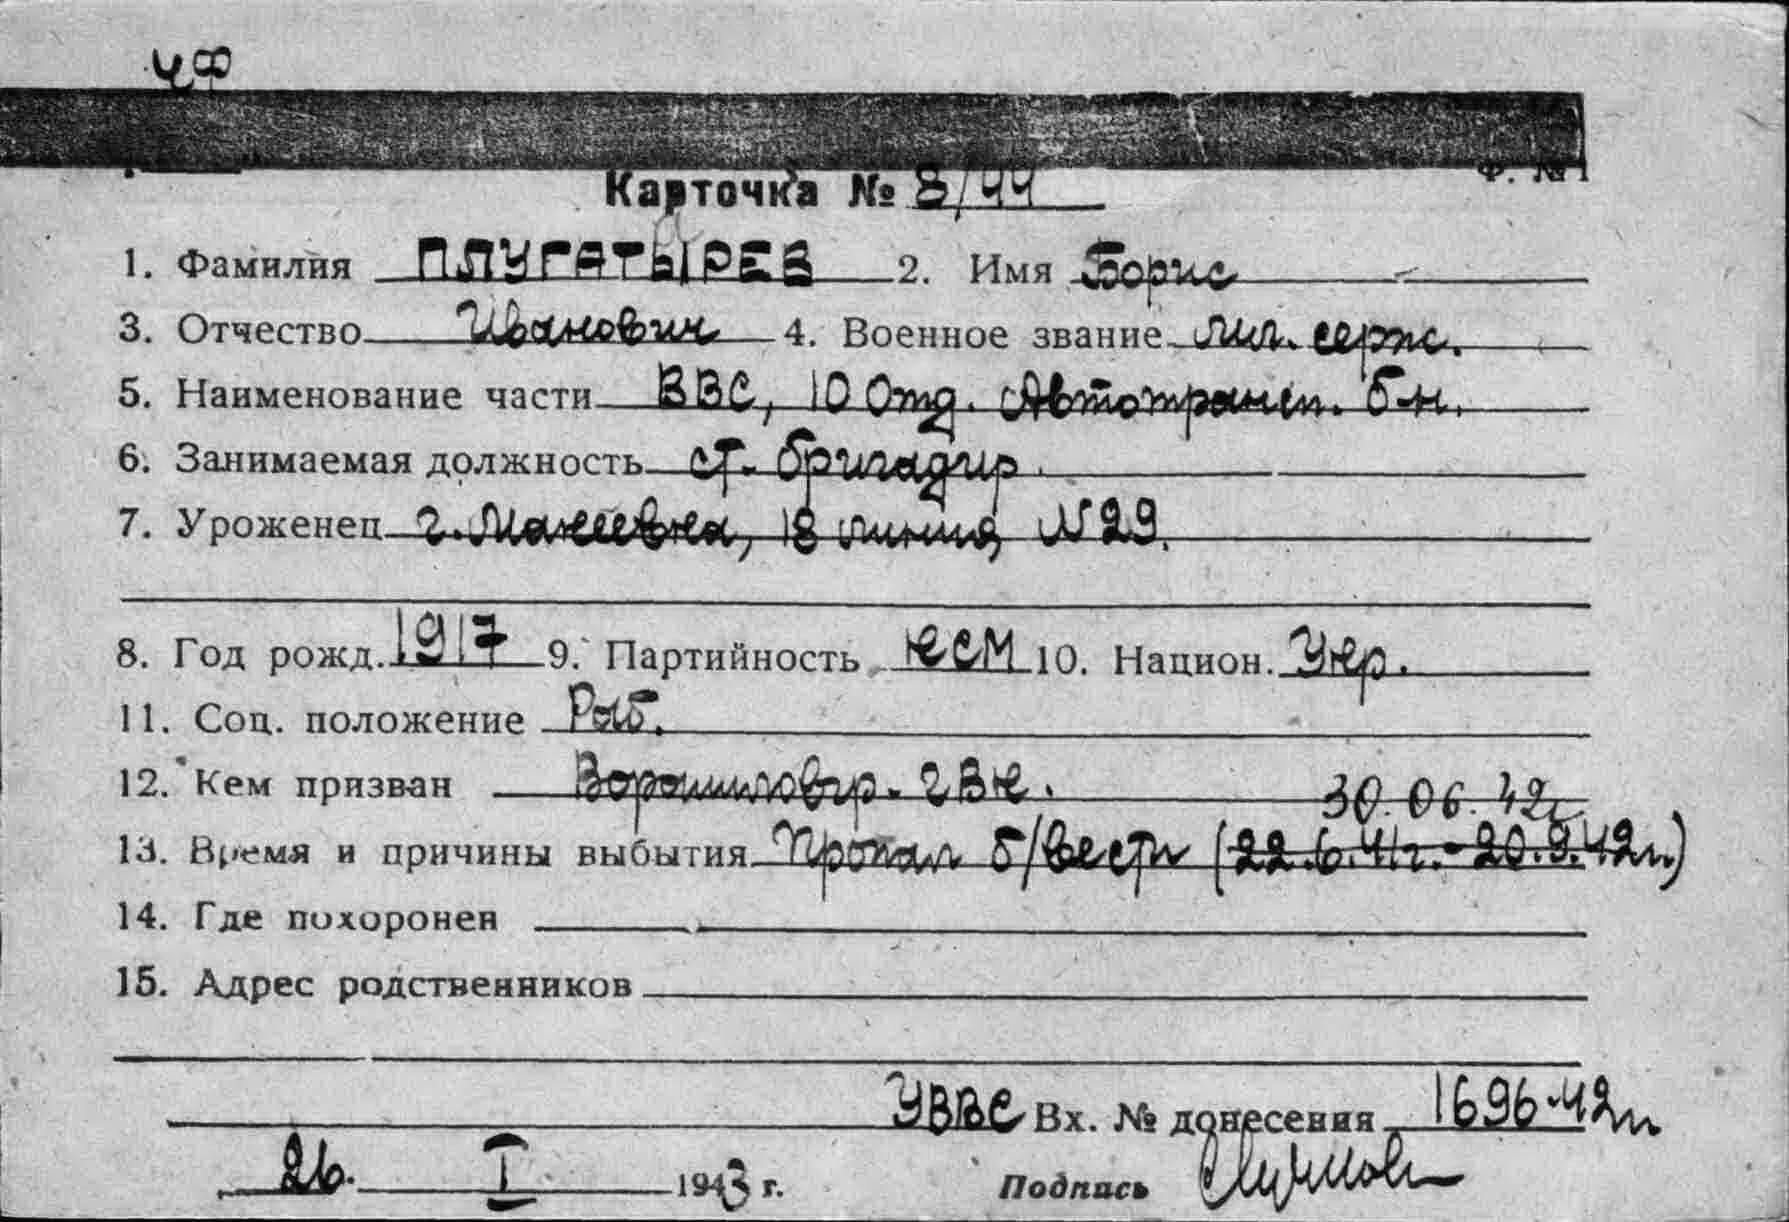 УФ
Ф. №1
Карточка № 8/44
1. Фамилия ПЛУГАТЫРЕВ 2. Имя Борис
3. Отчество Иванович 4. Военное звание мл. серж.
5. Наименование части ВВС, 10 Отд. Автотрансп. б-н.
6. Занимаемая должность ст. бригадир.
7. Уроженец г. Макеевка, 18 линия, N 29.
8. Год рожд. 1917 9. Партийность КСМ 10. Национ. Укр.
11. Соц. положение Раб.
12. Кем призван Ворошиловгр. ГВК. 30.06.42г
13. Время и причины выбытия Пропал б/вести (22.6.41г.-20.9.42г.)
14. Где похоронен
15. Адрес родственников
УВВС Вх. № донесения 1696-42г
26. I 1943 г. Подпись